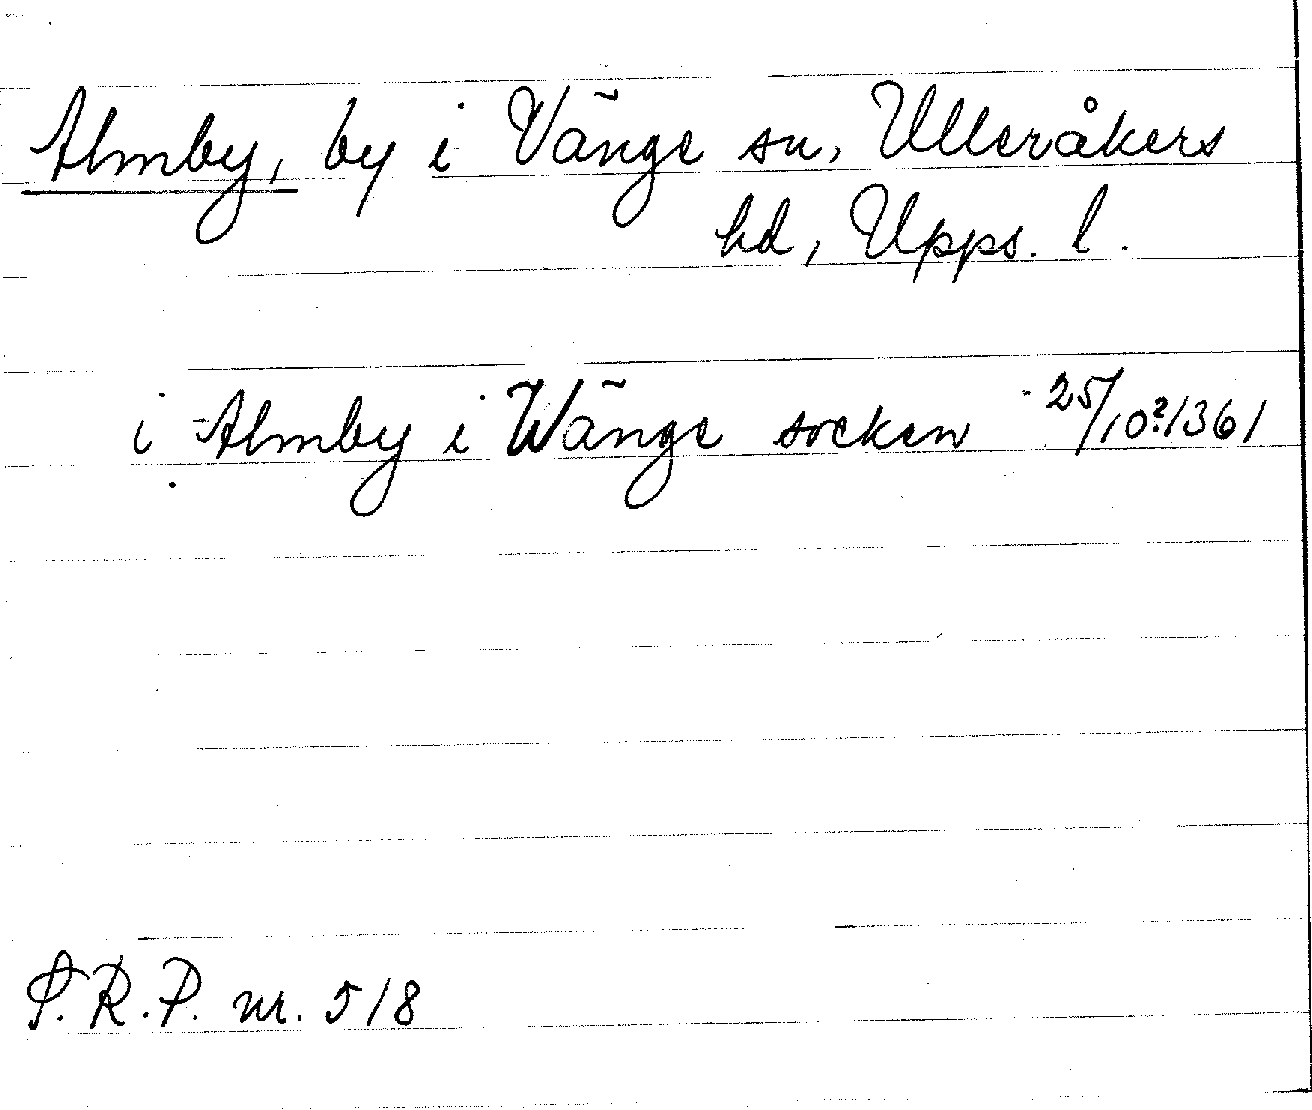 Almby, by i Vänge sn, Ulleråkers
hd, Upps. l.
i Almby i Wänge socken 25/10?1361
S.R.P. nr. 518